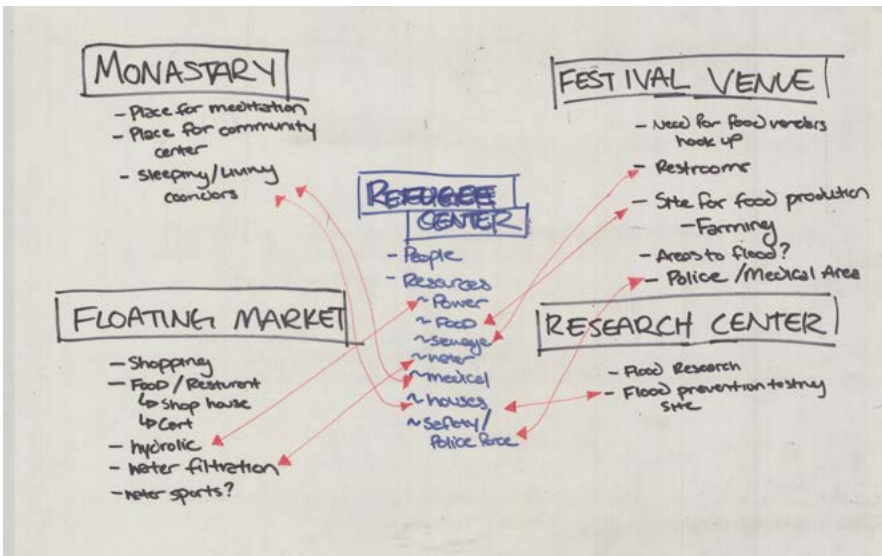 MONASTARY
- Place for meditation
- Place for community
center
- Sleeping/Living
cooridors
FLOATING MARKET
- Shopping
- FOOD / Resturent
↳ Shop house
↳ Cart
- hydrolic
- water filtration
- water sports?
REFUGEE
CENTER
- People
- Resources
~ Power
~ FOOD
~ sewage
~ water
~ medical
~ houses
~ Safety/
Police force
FESTIVAL VENUE
- Need for food vendors
hook up
- Restrooms
- Site for food production
- Farming
- Areas to flood?
- Police / Medical Area
RESEARCH CENTER
- Flood Research
- Flood prevention
site